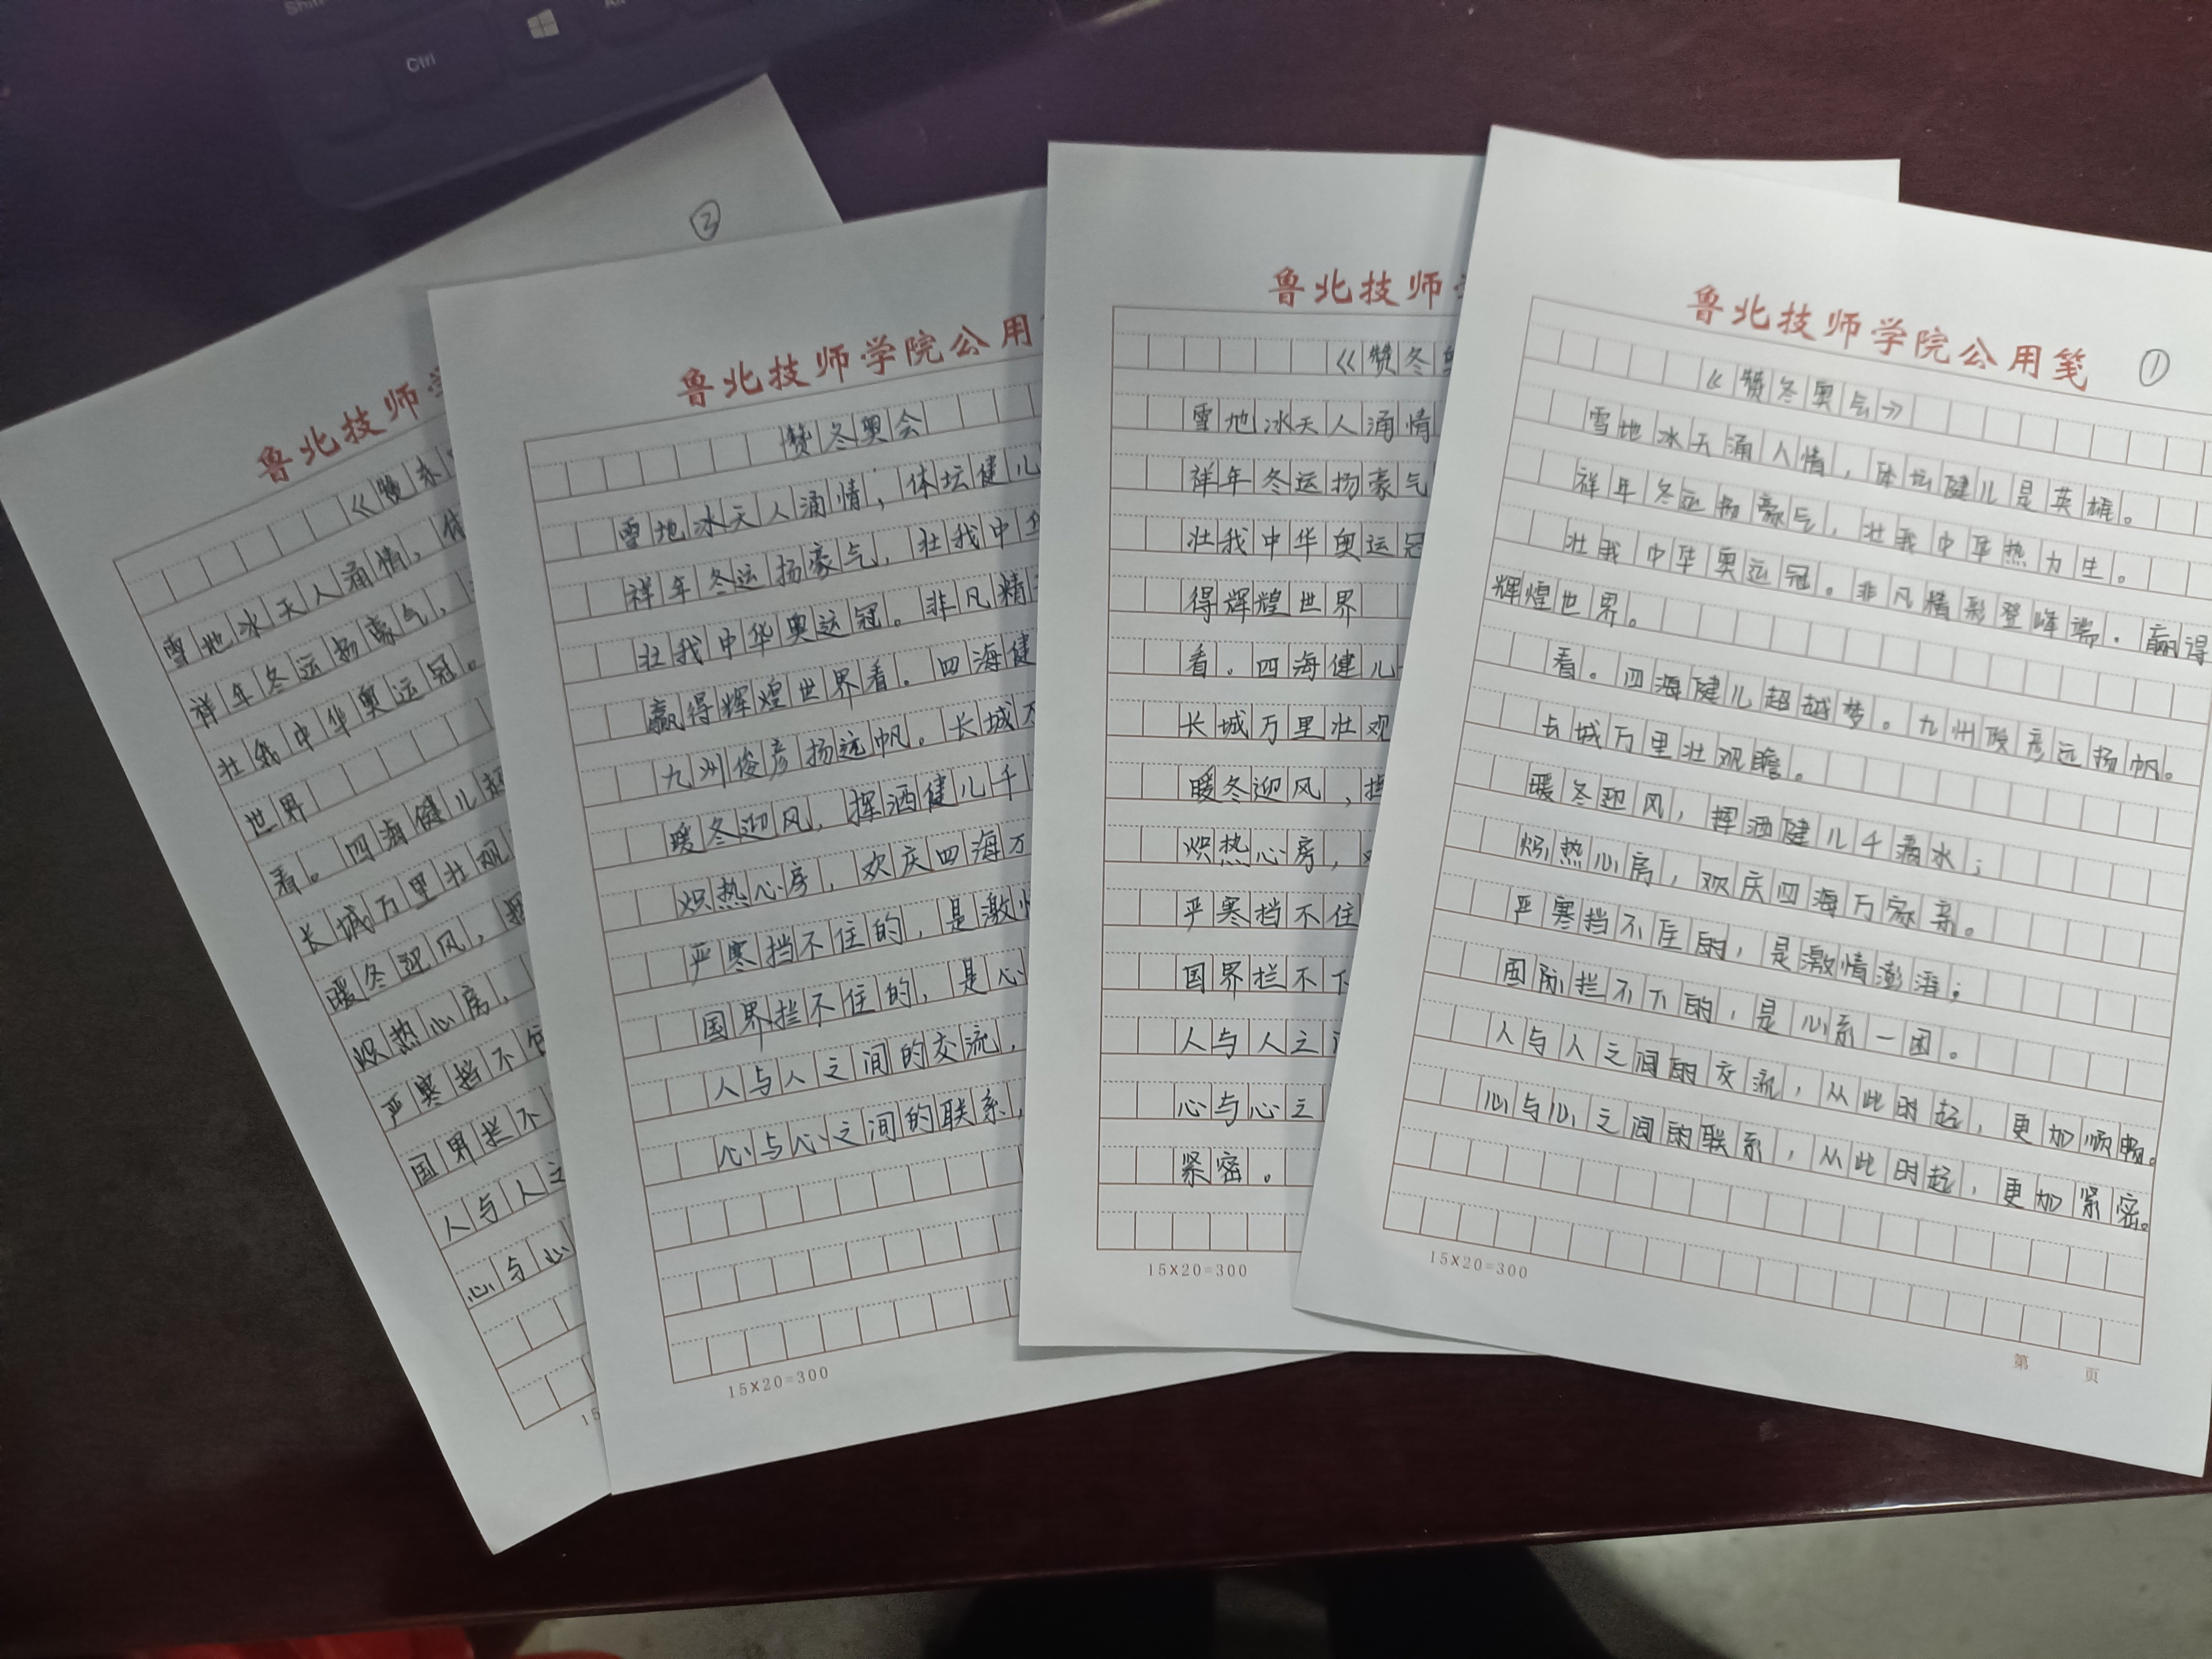 Ctrl
③
鲁北技师
《赞冬
雪地冰天人涌情，体
祥年冬运扬豪气，
壮我中华奥运冠。
世界
看。四海健儿超
长城万里壮观
暖冬迎风，挥
炽热心房，
严寒挡不住
国界拦不
人与人之
心与心
15
鲁北技师学院公用
赞冬奥会
雪地冰天人涌情，体坛健儿
祥年冬运扬豪气，壮我中华
壮我中华奥运冠。非凡精
赢得辉煌世界看。四海健
九州俊彦扬远帆。长城万
暖冬迎风，挥洒健儿千
炽热心房，欢庆四海万
严寒挡不住的，是激情
国界拦不住的，是心
人与人之间的交流，
心与心之间的联系，
15×20=300
鲁北技师
《赞冬奥
雪地冰天人涌情
祥年冬运扬豪气
壮我中华奥运冠
得辉煌世界
看。四海健儿
长城万里壮观
暖冬迎风，挥
炽热心房，
严寒挡不住
国界拦不下
人与人之
心与心之
紧密。
15×20=300
鲁北技师学院公用笺
①
《赞冬奥会》
雪地冰天涌人情，体坛健儿是英雄。
祥年冬运扬豪气，壮我中华热力生。
壮我中华奥运冠。非凡精彩登峰端。赢得
辉煌世界。
看。四海健儿超越梦。九州俊彦远扬帆。
长城万里壮观瞻。
暖冬迎风，挥洒健儿千滴水；
炽热心房，欢庆四海万家亲。
严寒挡不住的，是激情澎湃；
国际拦不下的，是心系一团。
人与人之间的交流，从此时起，更加顺畅。
心与心之间的联系，从此时起，更加紧密。
15×20=300
第 页